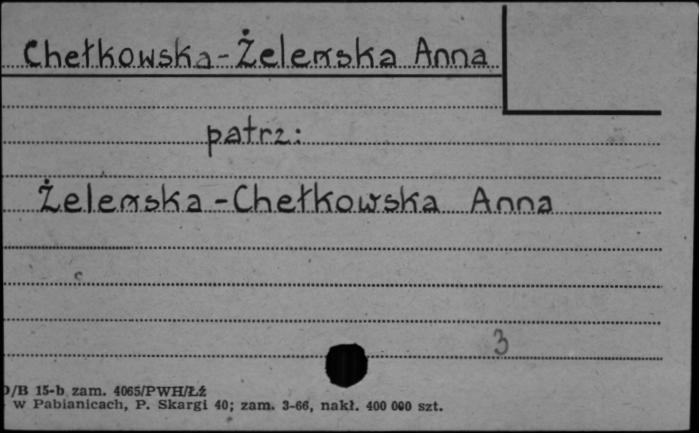 Chełkowska-Żeleńska Anna
patrz:
Żeleńska-Chełkowska Anna
3
D/B 15-b zam. 4065/PWH/ŁŹ
w Pabianicach, P. Skargi 40; zam. 3-66, nakł. 400 000 szt.